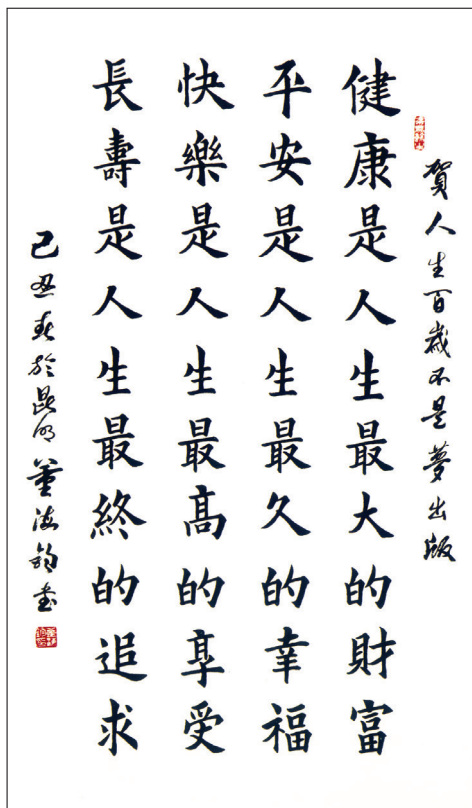 賀人生百歲不是夢出版
健康是人生最大的財富
平安是人生最久的幸福
快樂是人生最高的享受
長壽是人生最終的追求
己丑春於昆明董海鈞書